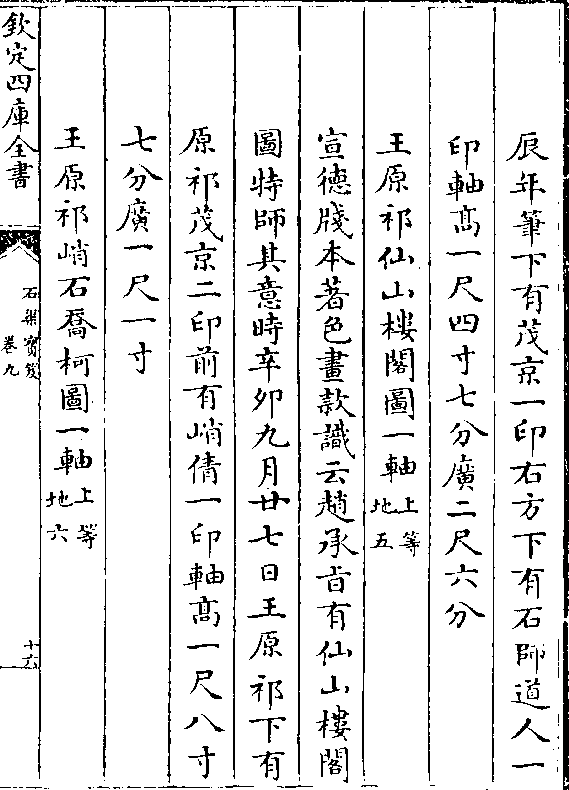 辰年筆下有茂京一印右方下有石師道人一
印軸髙一尺四寸七分廣二尺六分
王原祁仙山樓閣圖一軸上等地五
宣德牋本著色畫款識云趙承㫖有仙山樓閣
圖特師其意時辛卯九月廿七日王原祁下有
原祁茂京二印前有峭倩一印軸髙一尺八寸
七分廣一尺一寸
王原祁峭石喬柯圖一軸上等地六
欽定四庫全書
石渠寳笈
卷九
十六